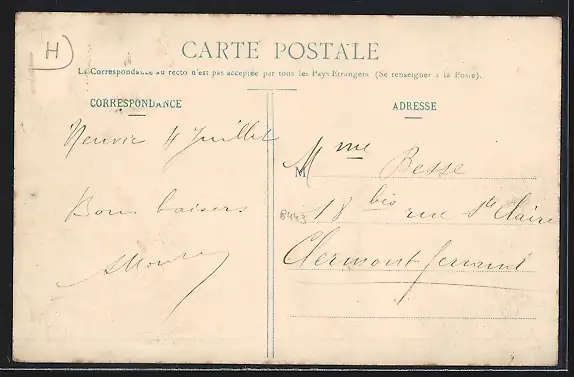 H
CARTE POSTALE
La Correspondance au recto n'est pas acceptée par tous les Pays Etrangers. (Se renseigner à la Poste).
CORRESPONDANCE
Neuvic 4 Juillet
Bons baisers
ADRESSE
Mme Besse
8443
18 bis rue Ste Claire
Clermont ferrand